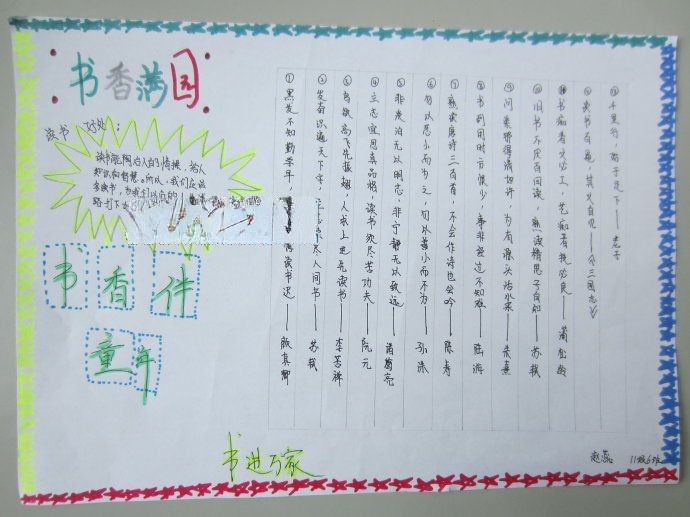 书香满园
读书好处：
读书能陶冶人的情操，给人
知识和智慧。所以，我们应该
多读书，为我们以后的
路打下
书香伴
童年
书进万家
①黑发不知勤学早，读书迟——颜真卿
②发奋识遍天下字，尽人间书——苏轼
③鸟欲高飞先振翅，人求上进先读书——李苦禅
④立志宜思真品格，读书须尽苦功夫——阮元
⑤非淡泊无以明志，非宁静无以致远——诸葛亮
⑥勿以恶小而为之，勿以善小而不为——
⑦熟读唐诗三百首，不会作诗也会吟——陈寿
⑧书到用时方恨少，事非经过不知难——陆游
⑨问渠那得清如许，为有源头活水来——朱熹
⑩旧书不厌百回读，熟读精思子自知——苏轼
书痴者文必工，艺痴者技必良——蒲松龄
读书百遍，其义自见——《三国志》
千里行，始于足下——老子
赵蕊 11级6班